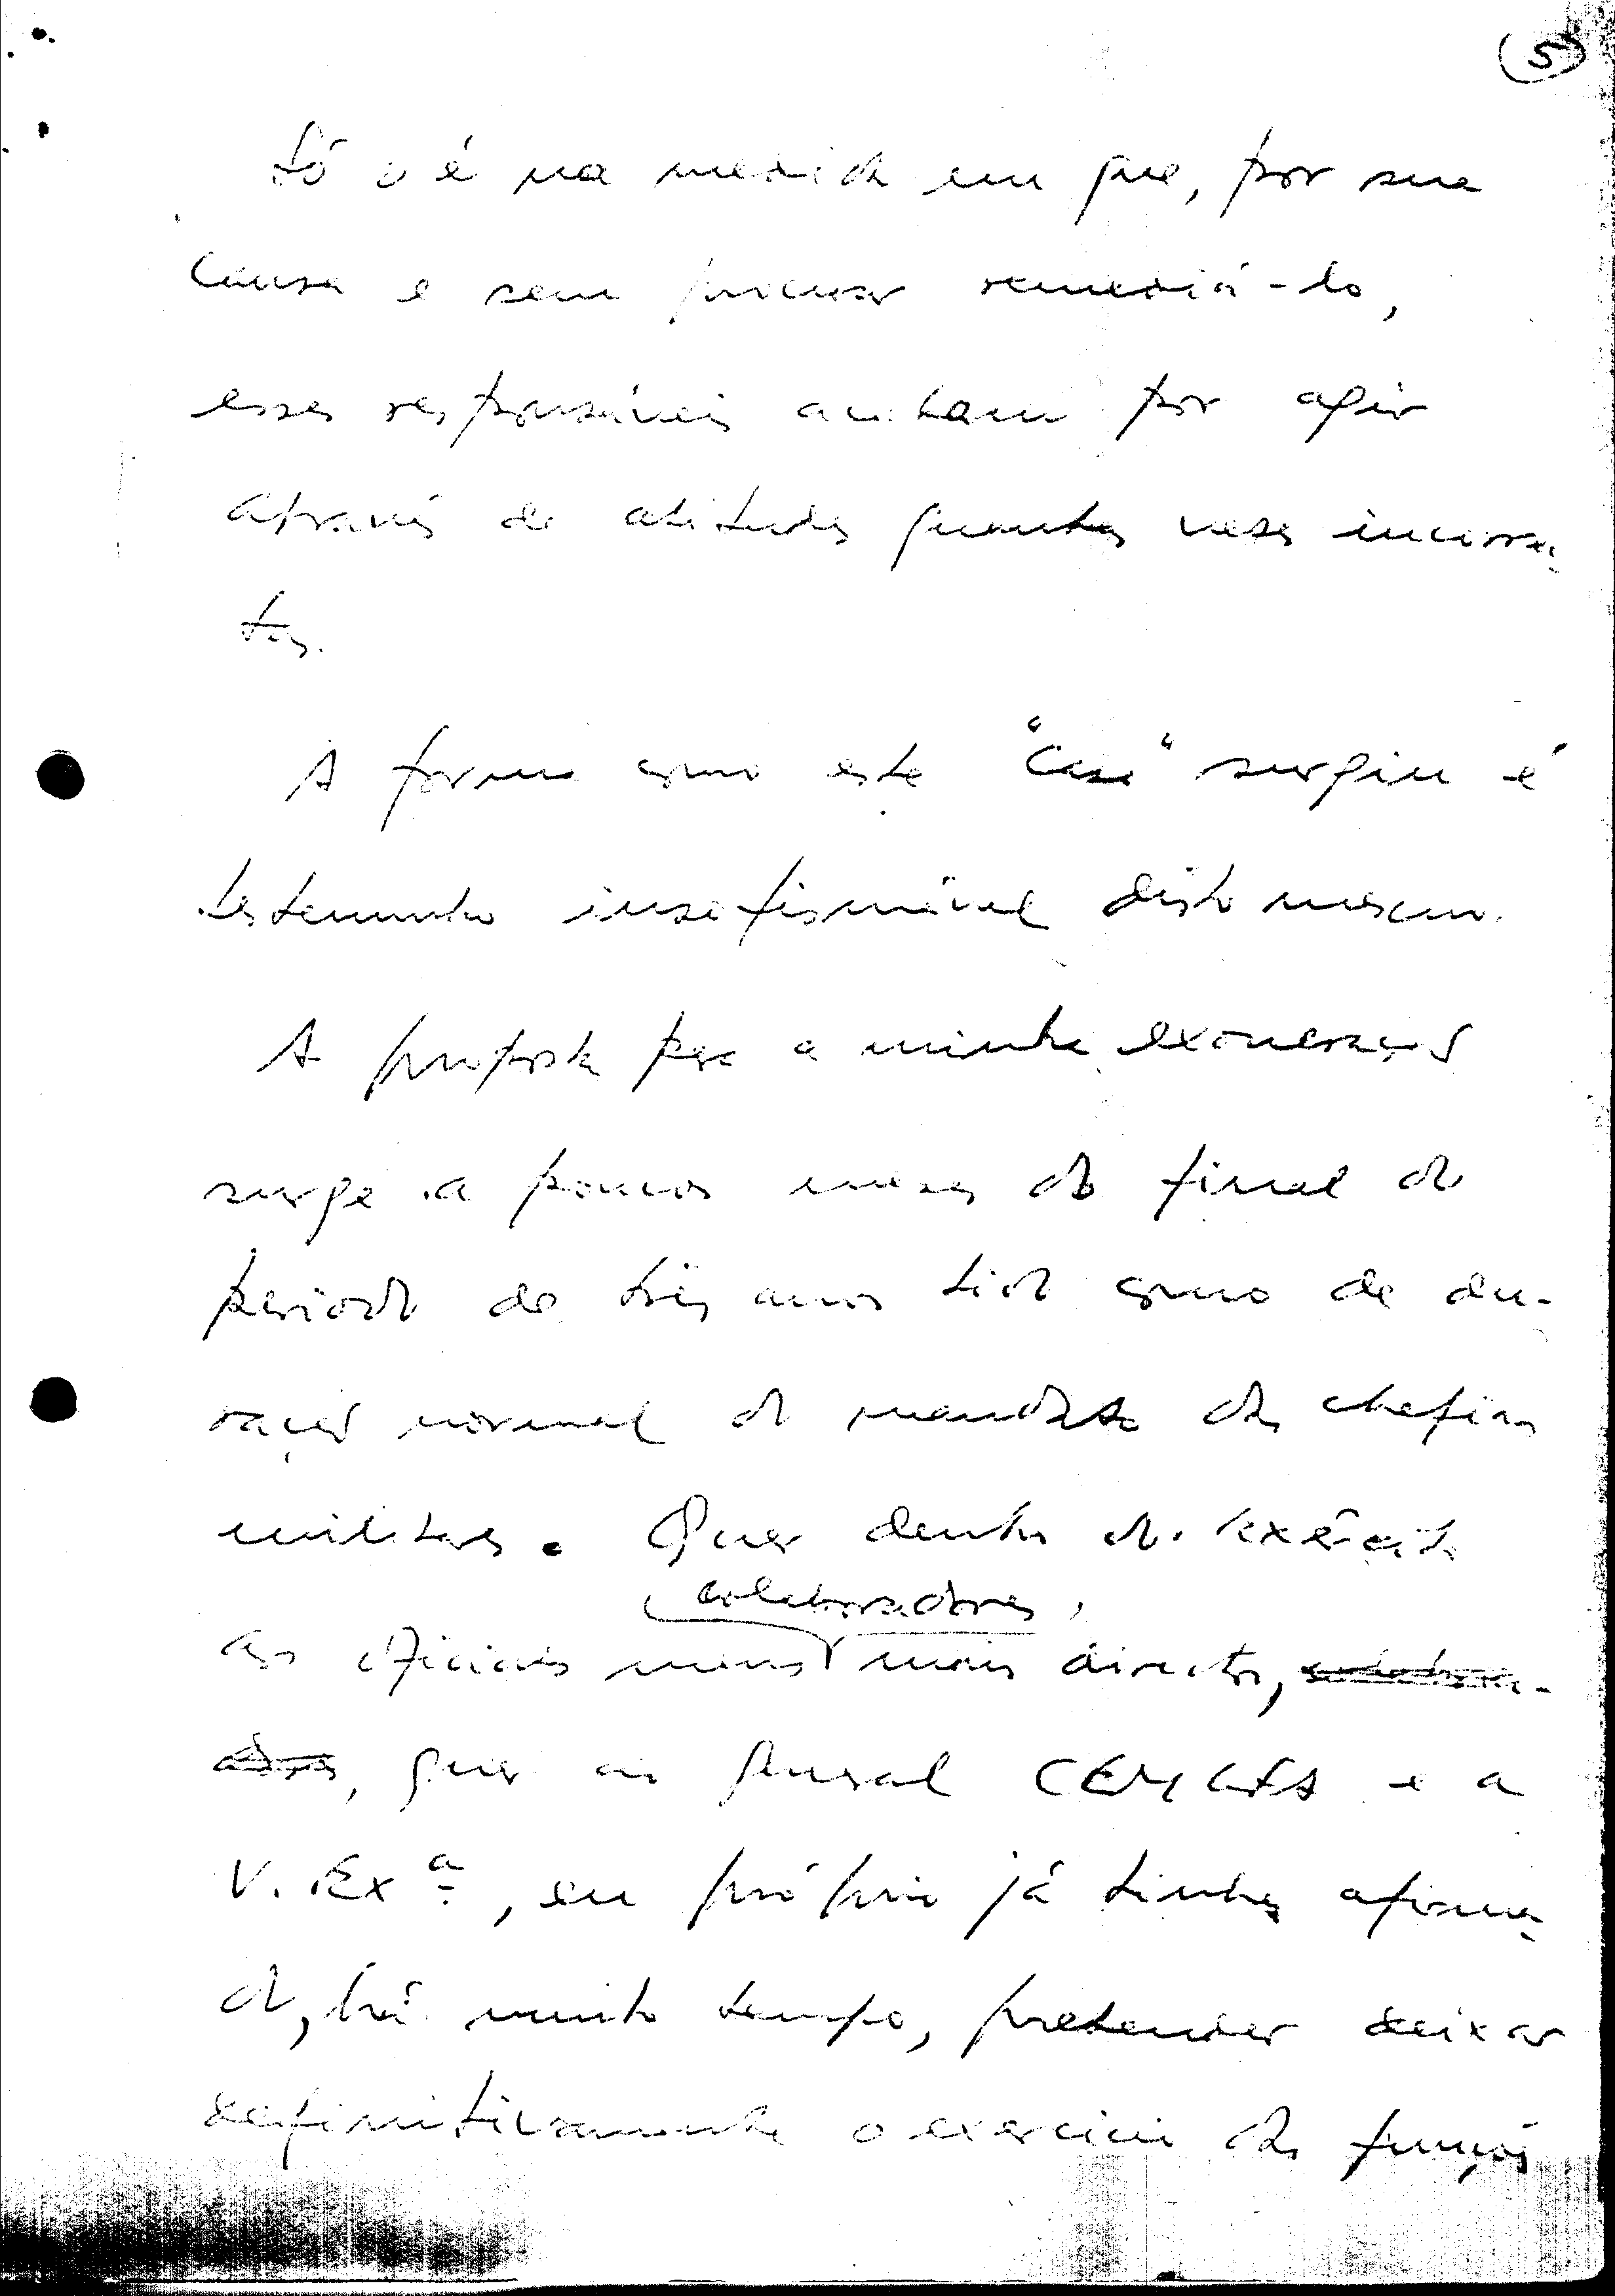 5
Só o é na medida em que, por sua
causa e sem procurar remediá-lo,
esses responsáveis acabam por agir
através de atitudes quantas vezes incorrec-
tas.
A forma como este "caso" surgiu é
testemunho insofismável disto mesmo.
A proposta para a minha exoneração
surge a poucos meses do final do
período de três anos tido como de du-
ração normal do mandato das chefias
militares. Quer dentro do Exército
colaboradores,
aos oficiais meus mais directos, colabora-
dores, quer ao general CEMGFA e a
V. Exª, eu próprio já tinha afirma-
do, há muito tempo, pretender deixar
definitivamente o exercício das funções